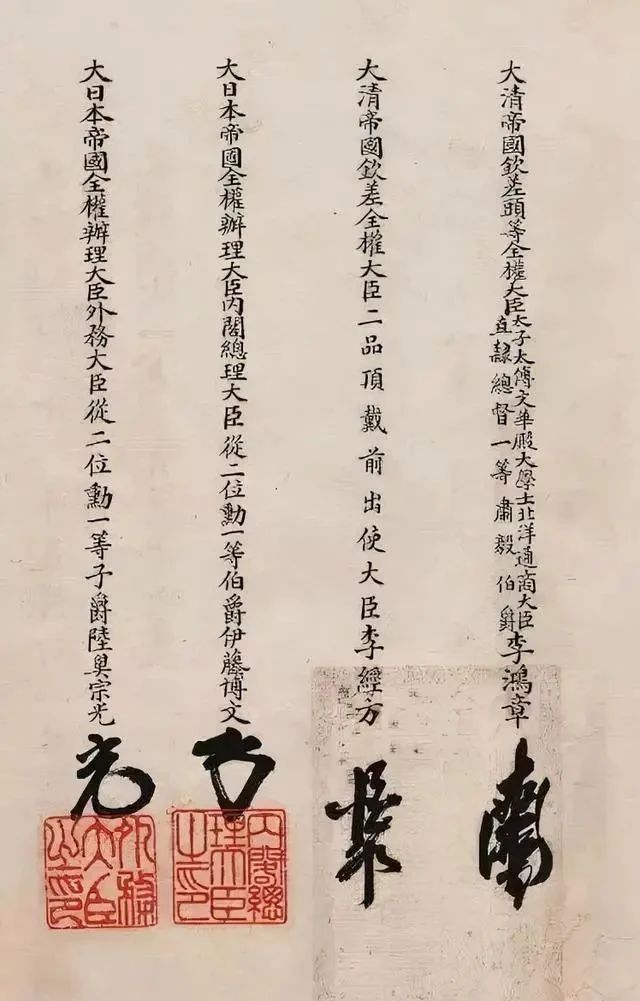 大清帝國欽差頭等全權大臣太子太傅文華殿大學士北洋通商大臣直隸總督一等肅毅伯爵李鴻章
大清帝國欽差全權大臣二品頂戴前出使大臣李經方
大日本帝國全權辦理大臣內閣總理大臣從二位勳一等伯爵伊藤博文
內閣總理大臣之印
大日本帝國全權辦理大臣外務大臣從二位勳一等子爵陸奧宗光
光
外務大臣之印